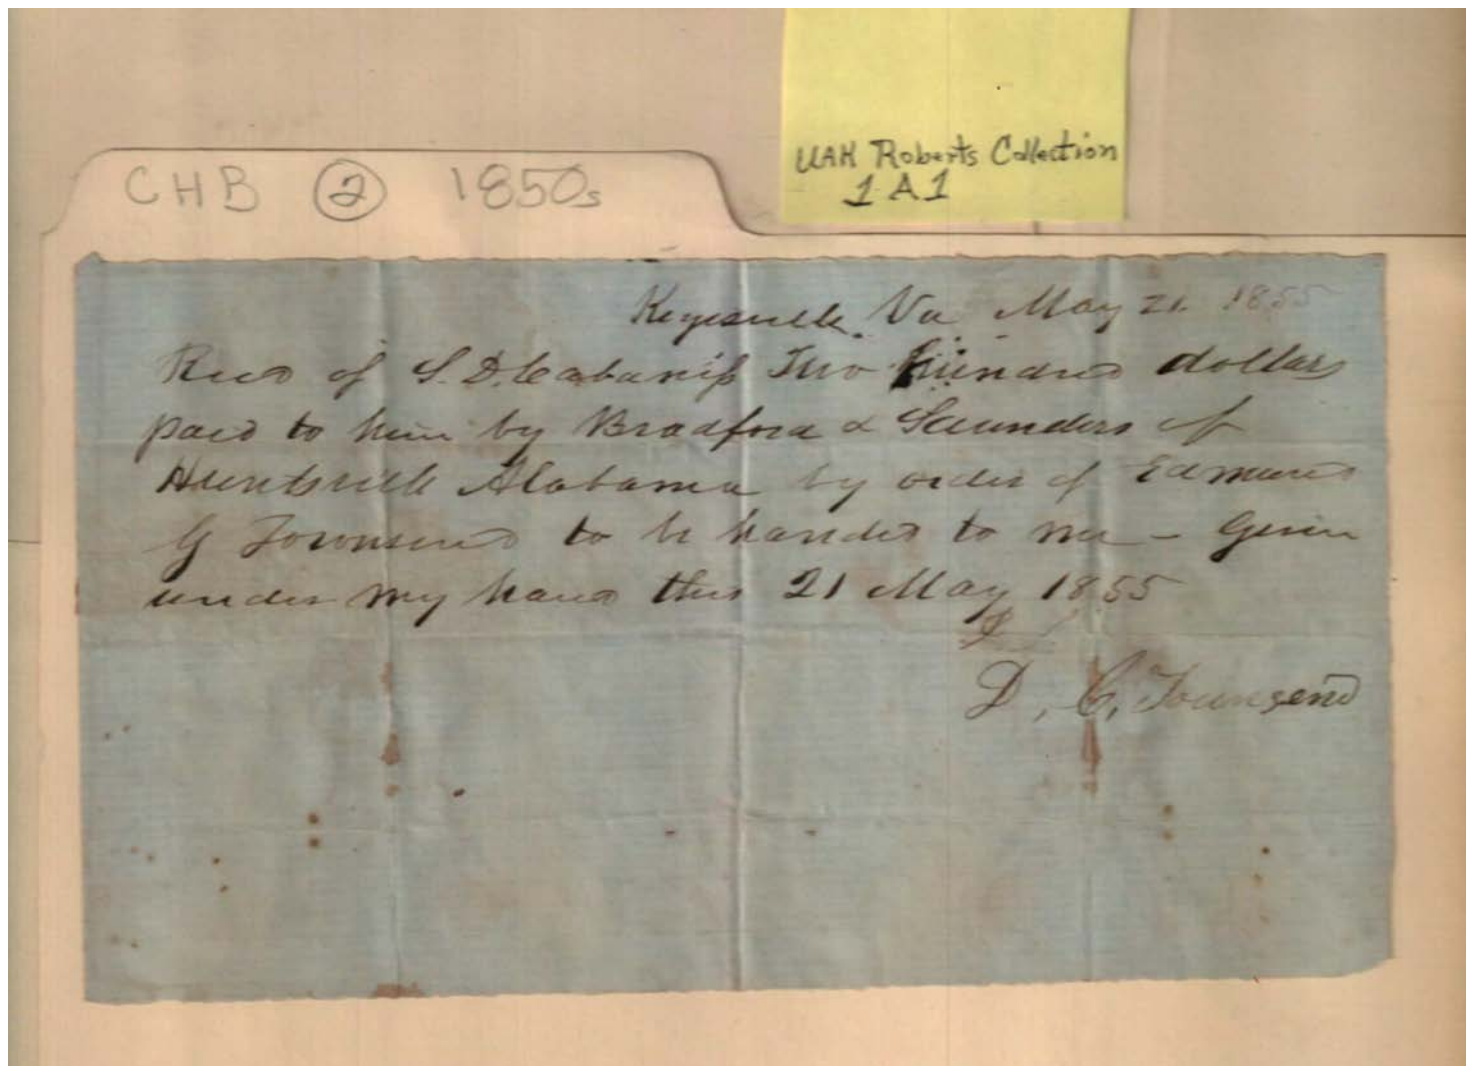 UAH Roberts Collection
1A1
CHB ② 1850s
Keysville Va May 21. 1855
Recd of S. D. Cabaniss Two hundred dollars
paid to him by Bradford & Saunders of
Huntsville Alabama by order of Edmund
G Townsend to be handed to me – Given
under my hand this 21 May 1855
D. C. Townsend